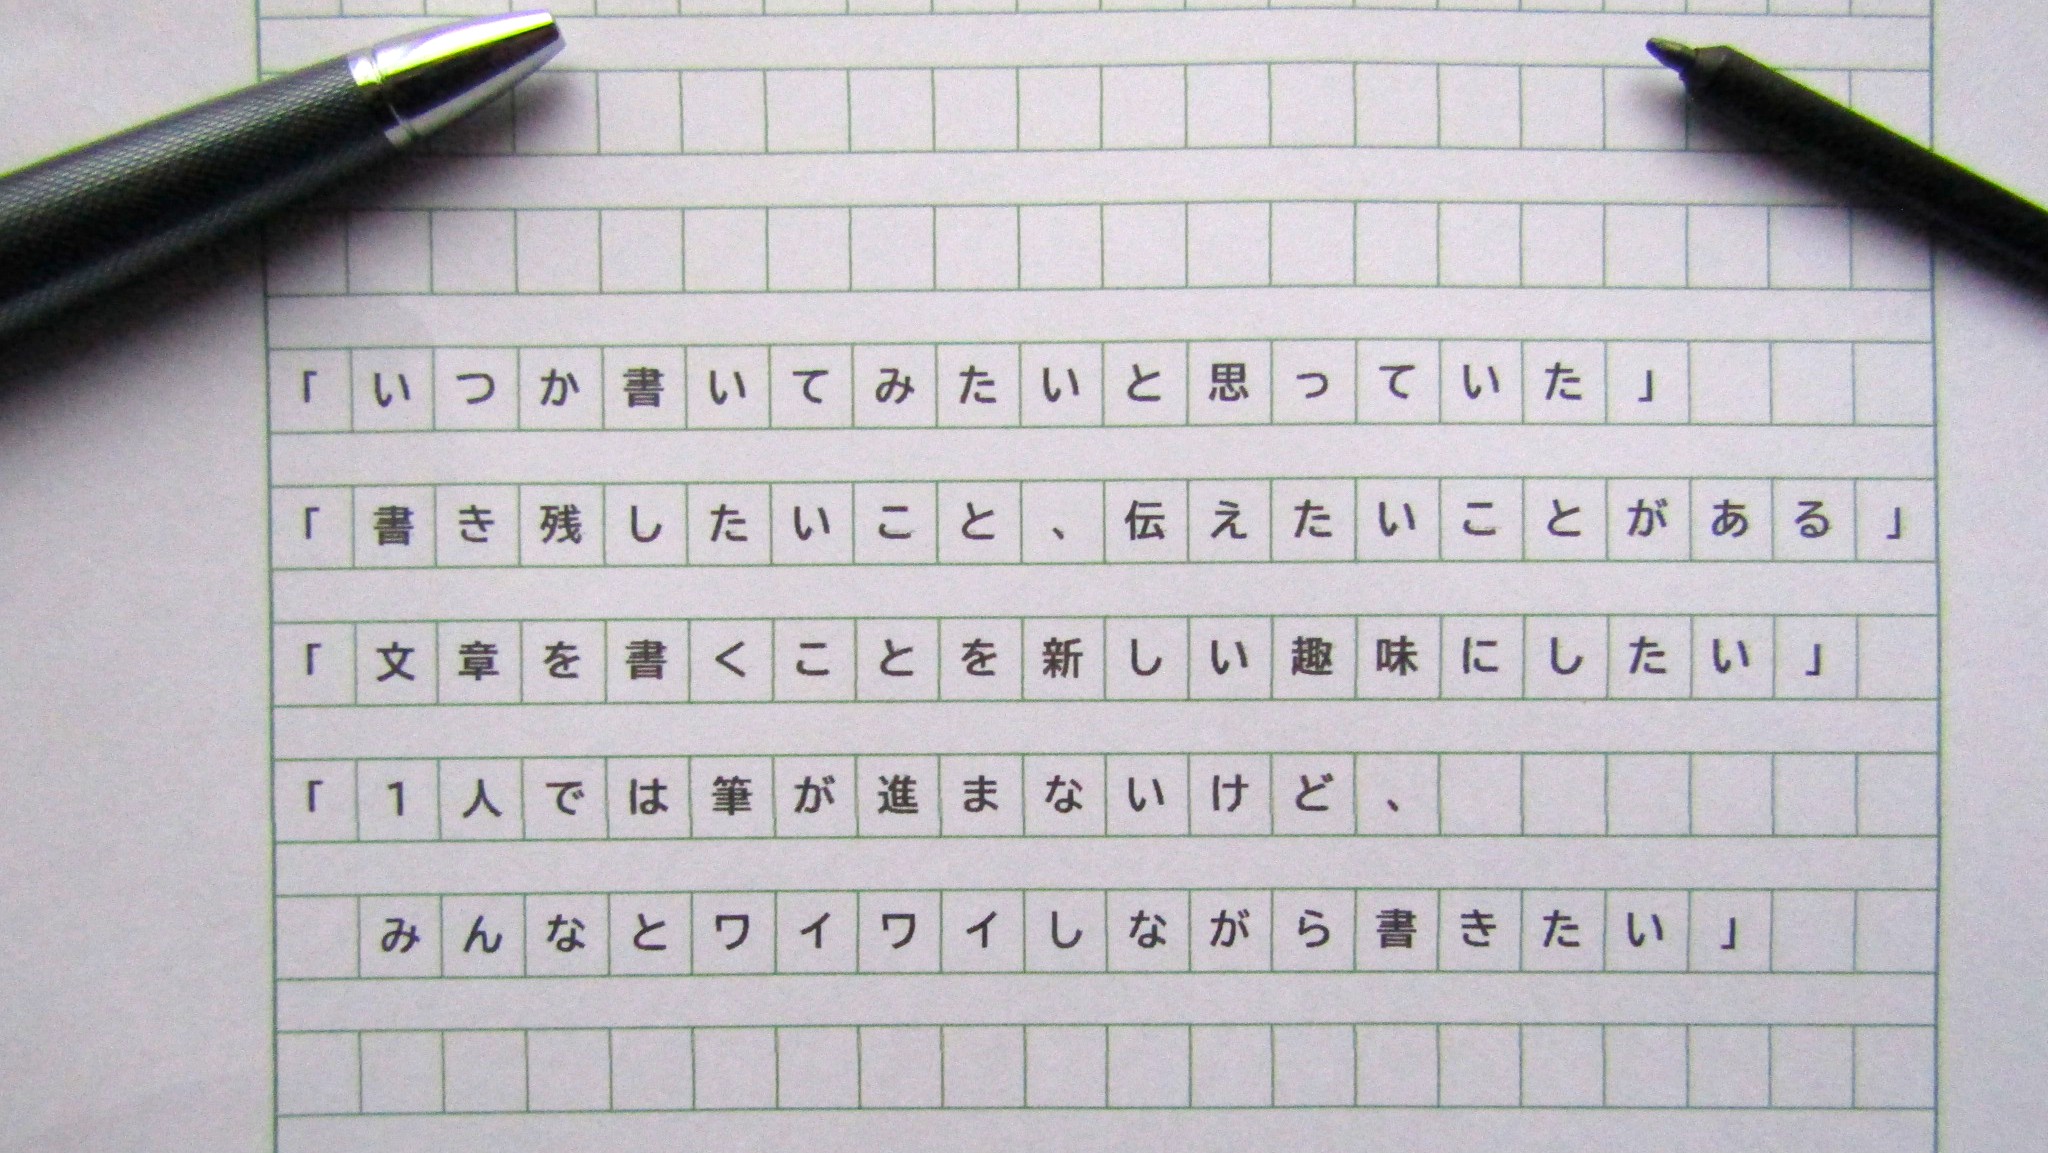 「いつか書いてみたいと思っていた」
「書き残したいこと、伝えたいことがある」
「文章を書くことを新しい趣味にしたい」
「1人では筆が進まないけど、
みんなとワイワイしながら書きたい」